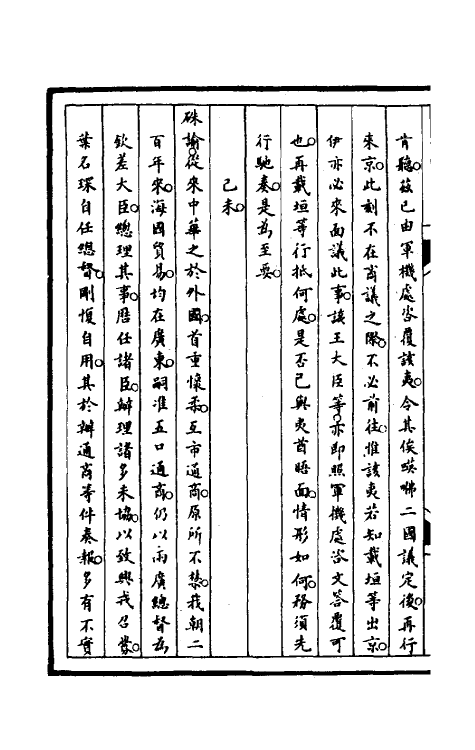 肯聽。茲已由軍機處咨覆該夷。令其俟暎咈二國議定後。再行
來京。此刻不在商議之際。不必前往。惟該夷若知載垣等出京。
伊亦必來面議此事。該王大臣等。亦即照軍機處咨文答覆可
也。再載垣等行抵何處。是否已與夷酋晤面。情形如何。務須先
行馳奏。是為至要。
己未
硃諭。從來中華之於外國。首重懷柔。互市通商。原所不禁。我朝二
百年來。海國貿易。均在廣東。嗣准五口通商。仍以兩廣總督為
欽差大臣。總理其事。歷任諸臣。辦理諸多未協。以致興戎召釁。
葉名琛自任總督。剛愎自用。其於辦通商等件奏報。多有不實